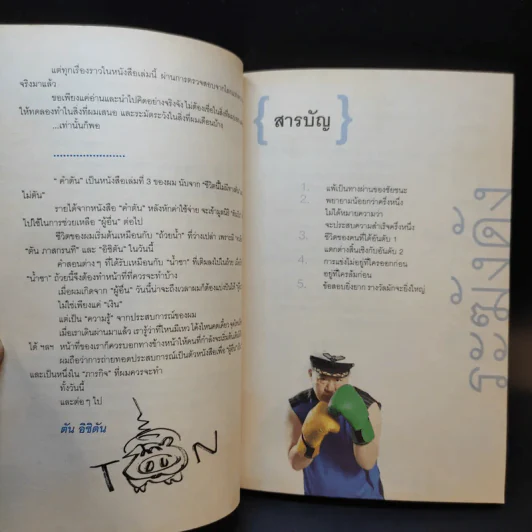 แต่ทุกเรื่องราวในหนังสือเล่มนี้ ผ่านการตรวจสอบจากโลก
จริงมาแล้ว
ขอเพียงแค่อ่านและนำไปคิดอย่างจริงจัง ไม่ต้องเชื่อในสิ่งที่ผม
ให้ทดลองทำในสิ่งที่ผมเสนอ และระมัดระวังในสิ่งที่ผมเตือนบ้าง
...เท่านั้นก็พอ
"คำตัน" เป็นหนังสือเล่มที่ 3 ของผม นับจาก "ชีวิตนี้ไม่มีทาง
ไม่ตัน"
รายได้จากหนังสือ "คำตัน" หลังหักค่าใช้จ่าย จะเข้ามูลนิธิ
ไปใช้ในการช่วยเหลือ "ผู้อื่น" ต่อไป
ชีวิตของผมเริ่มต้นเหมือนกับ "ถ้วยน้ำ" ที่ว่างเปล่า เพราะมี
"ตัน ภาสกรนที" และ "อิชิตัน" ในวันนี้
คำสอนต่าง ๆ ที่ได้รับเหมือนกับ "น้ำชา" ที่เติมลงไปในถ้วย
"น้ำชา" ถ้วยนี้จึงต้องทำหน้าที่ที่ควรจะทำบ้าง
เมื่อผมเกิดจาก "ผู้อื่น" วันนี้น่าจะถึงเวลาผมก็ต้องแบ่งปันให้
ไม่ใช่เพียงแค่ "เงิน"
แต่เป็น "ความรู้" จากประสบการณ์ของผม
เมื่อเราเดินผ่านมาแล้ว เรารู้ว่าที่ไหนมีเหว โค้งไหนคดเคี้ยว
ได้ ฯลฯ หน้าที่ของเราก็ควรบอกทางข้างหน้าให้คนที่กำลังจะเริ่มต้น
ผมถือว่าการถ่ายทอดประสบการณ์เป็นตัวหนังสือเพื่อ
และเป็นหนึ่งใน "ภารกิจ" ที่ผมควรจะทำ
ทั้งวันนี้
และต่อ ๆ ไป
ตัน อิชิตัน
TON
{สารบัญ}
1. แพ้เป็นทางผ่านของชัยชนะ
2. พยายามน้อยกว่าครึ่งหนึ่ง
ไม่ได้หมายความว่า
จะประสบความสำเร็จครึ่งหนึ่ง
3. ชีวิตของคนที่ได้อันดับ 1
แตกต่างสิ้นเชิงกับอันดับ 2
4. การแข่งไม่อยู่ที่ใครออกก่อน
อยู่ที่ใครล้มก่อน
5. ข้อสอบยิ่งยาก รางวัลมักจะยิ่งใหญ่
ระฆังดัง